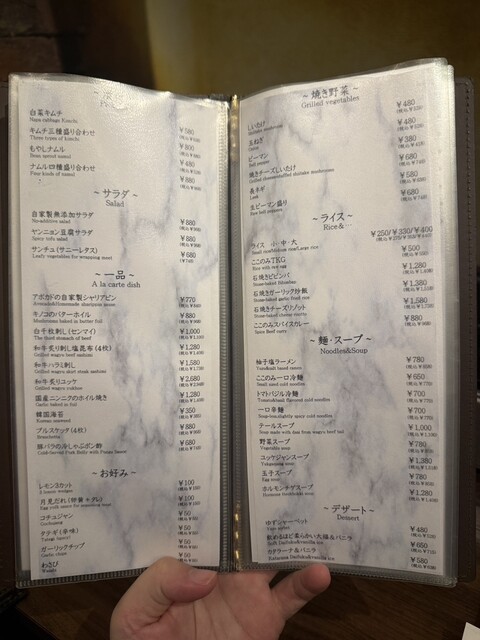 白菜キムチ
Napa cabbage Kimchi
¥580
キムチ三種盛り合わせ
Three types of kimchi
¥800
もやしナムル
Bean sprout namul
¥480
ナムル四種盛り合わせ
Four kinds of namul
¥880
~サラダ~
Salad
自家製無添加サラダ
No-additive salad
¥880
ヤンニョン豆腐サラダ
Spicy tofu salad
¥880
サンチュ(サニーレタス)
Leafy vegetables for wrapping meat
¥680
~一品~
A la carte dish
アボカドの自家製シャリアピン
¥770
キノコのバターホイル
Mushrooms baked in butter foil
¥880
白千枚刺し(センマイ)
The third stomach of beef
¥1,000
和牛炙り刺し塩昆布(4枚)
¥1,280
和牛ハラミ刺し
¥1,580
和牛炙りユッケ
¥2,680
国産ニンニクのホイル焼き
Garlic baked in foil
¥1,280
韓国海苔
Korean seaweed
¥350
ブルスケッタ(4枚)
Bruschetta
¥880
豚バラの冷しゃぶポン酢
¥680
~お好み~
レモン3カット
3 lemon wedges
¥100
月見だれ(卵黄+タレ)
¥100
コチュジャン
Gochujang
¥50
タテギ(辛味)
¥50
ガーリックチップ
Garlic chips
¥50
わさび
Wasabi
¥50
~焼き野菜~
Grilled vegetables
しいたけ
Shiitake mushroom
¥480
玉ねぎ
Onion
¥480
ピーマン
¥380
焼きチーズしいたけ
¥680
長ネギ
Leek
¥580
生ピーマン盛り
Raw bell peppers
¥680
~ライス~
Rice&
ライス 小・中・大
¥250/¥330/¥400
ここのみTKG
Rice with raw egg
¥500
石焼きビビンバ
Stone-baked bibimbap
¥1,280
石焼きガーリック炒飯
Stone-baked garlic fried rice
¥1,380
石焼きチーズリゾット
Stone-baked cheese risotto
¥1,580
ここのみスパイスカレー
Spice Beef curry
¥880
~麺・スープ~
Noodles&Soup
柚子塩ラーメン
¥780
ここのみ一口冷麺
Small sized cold noodles
¥650
トマトバジル冷麺
Tomato&basil flavored cold noodles
¥700
一口辛麺
¥700
テールスープ
¥1,000
野菜スープ
Vegetable soup
¥780
ユッケジャンスープ
¥1,380
玉子スープ
Egg soup
¥780
ホルモンチゲスープ
¥1,280
~デザート~
Dessert
ゆずシャーベット
¥480
飲めるほど柔らかい大福&バニラ
Soft Daifuku&vanilla ice
¥650
カタラーナ&バニラ
Katarana Daifuku&vanilla ice
¥580